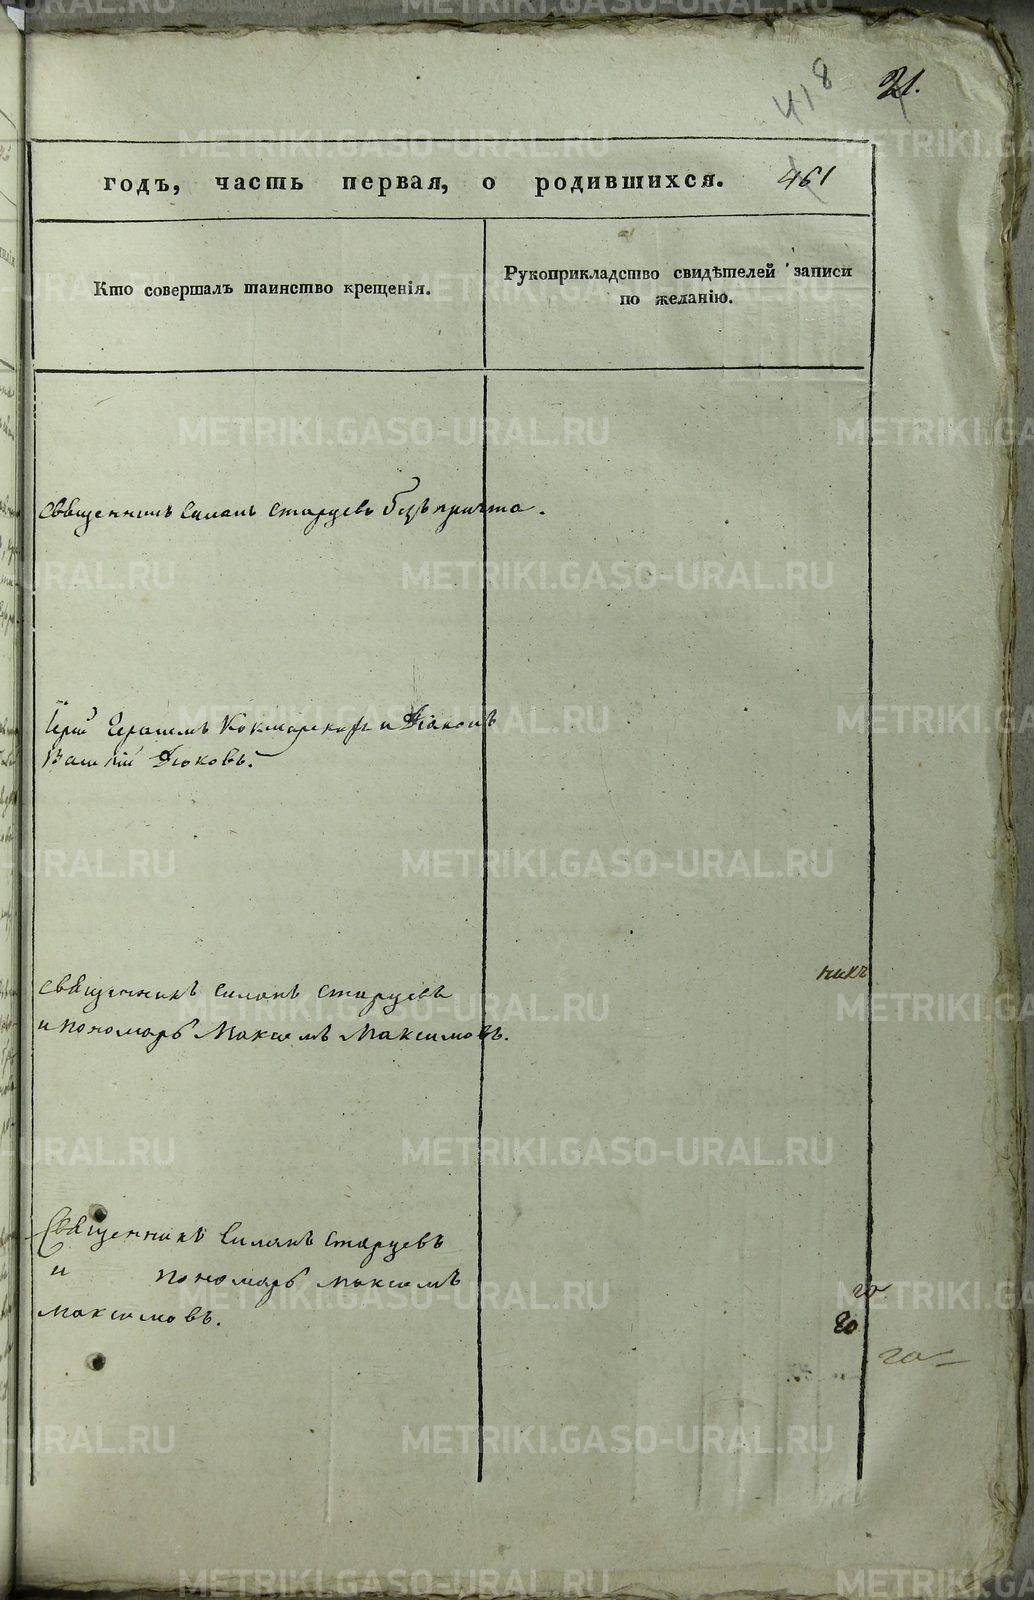 418
21.
годъ, часть первая, о родившихся. 461
Кто совершалъ таинство крещенія.
Рукоприкладство свидѣтелей записи
по желанію.
священникъ Симонъ Старцевъ безъ причта.
Іерей Герасимъ и Діаконъ
Василій Дюковъ.
никъ
священникъ Симонъ Старцевъ
и пономарь Максимъ Максимовъ.
Священникъ Симонъ Старцевъ
и пономарь Максимъ
Максимовъ.
го
го
го
METRIKI.GASO-URAL.RU